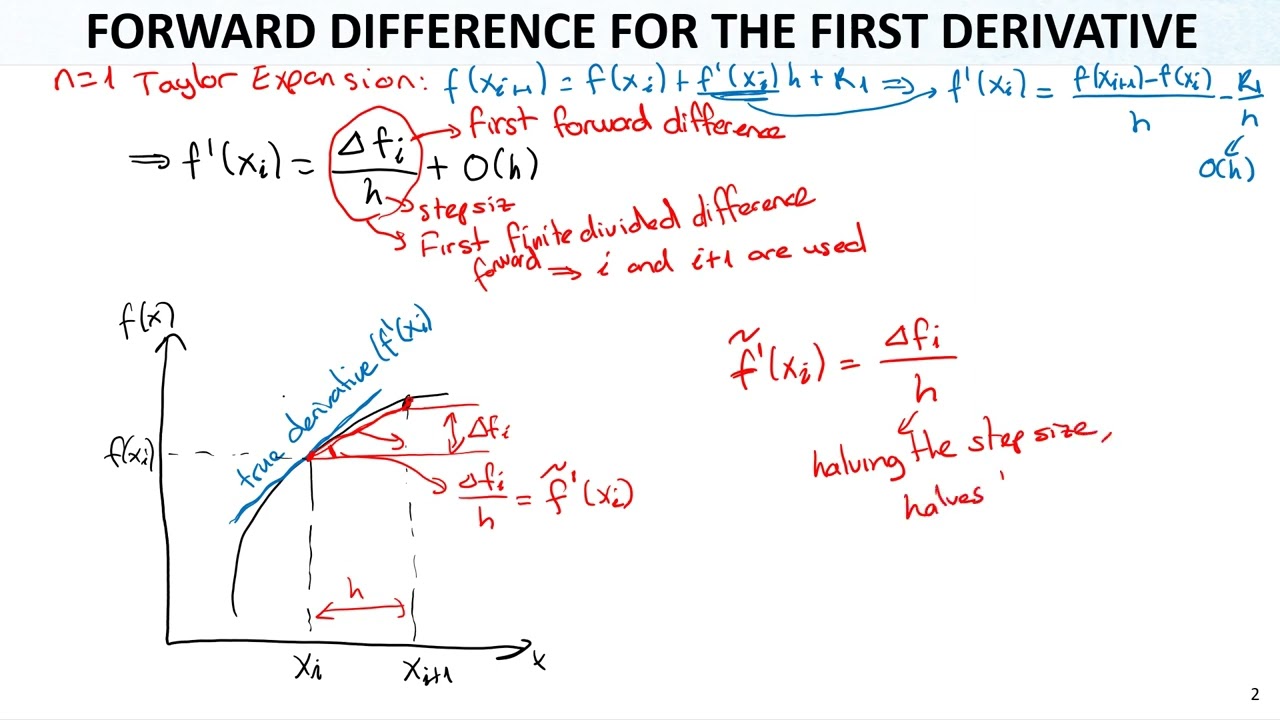 FORWARD DIFFERENCE FOR THE FIRST DERIVATIVE
n=1 Taylor Expansion: f(xi+1) = f(xi) + f'(xi) h + R1 ⇒ f'(xi) = f(xi+1)-f(xi) / h - R1 / h
O(h)
⇒ f'(xi) = Δfi / h + O(h)
first forward difference
stepsiz
First finite divided difference
forward ⇒ i and i+1 are used
f(x)
true derivative (f'(xi)
f(xi)
Δfi
Δfi / h = f̃'(xi)
h
xi
xi+1
x
f̃'(xi) = Δfi / h
halving the step size,
halves '
2